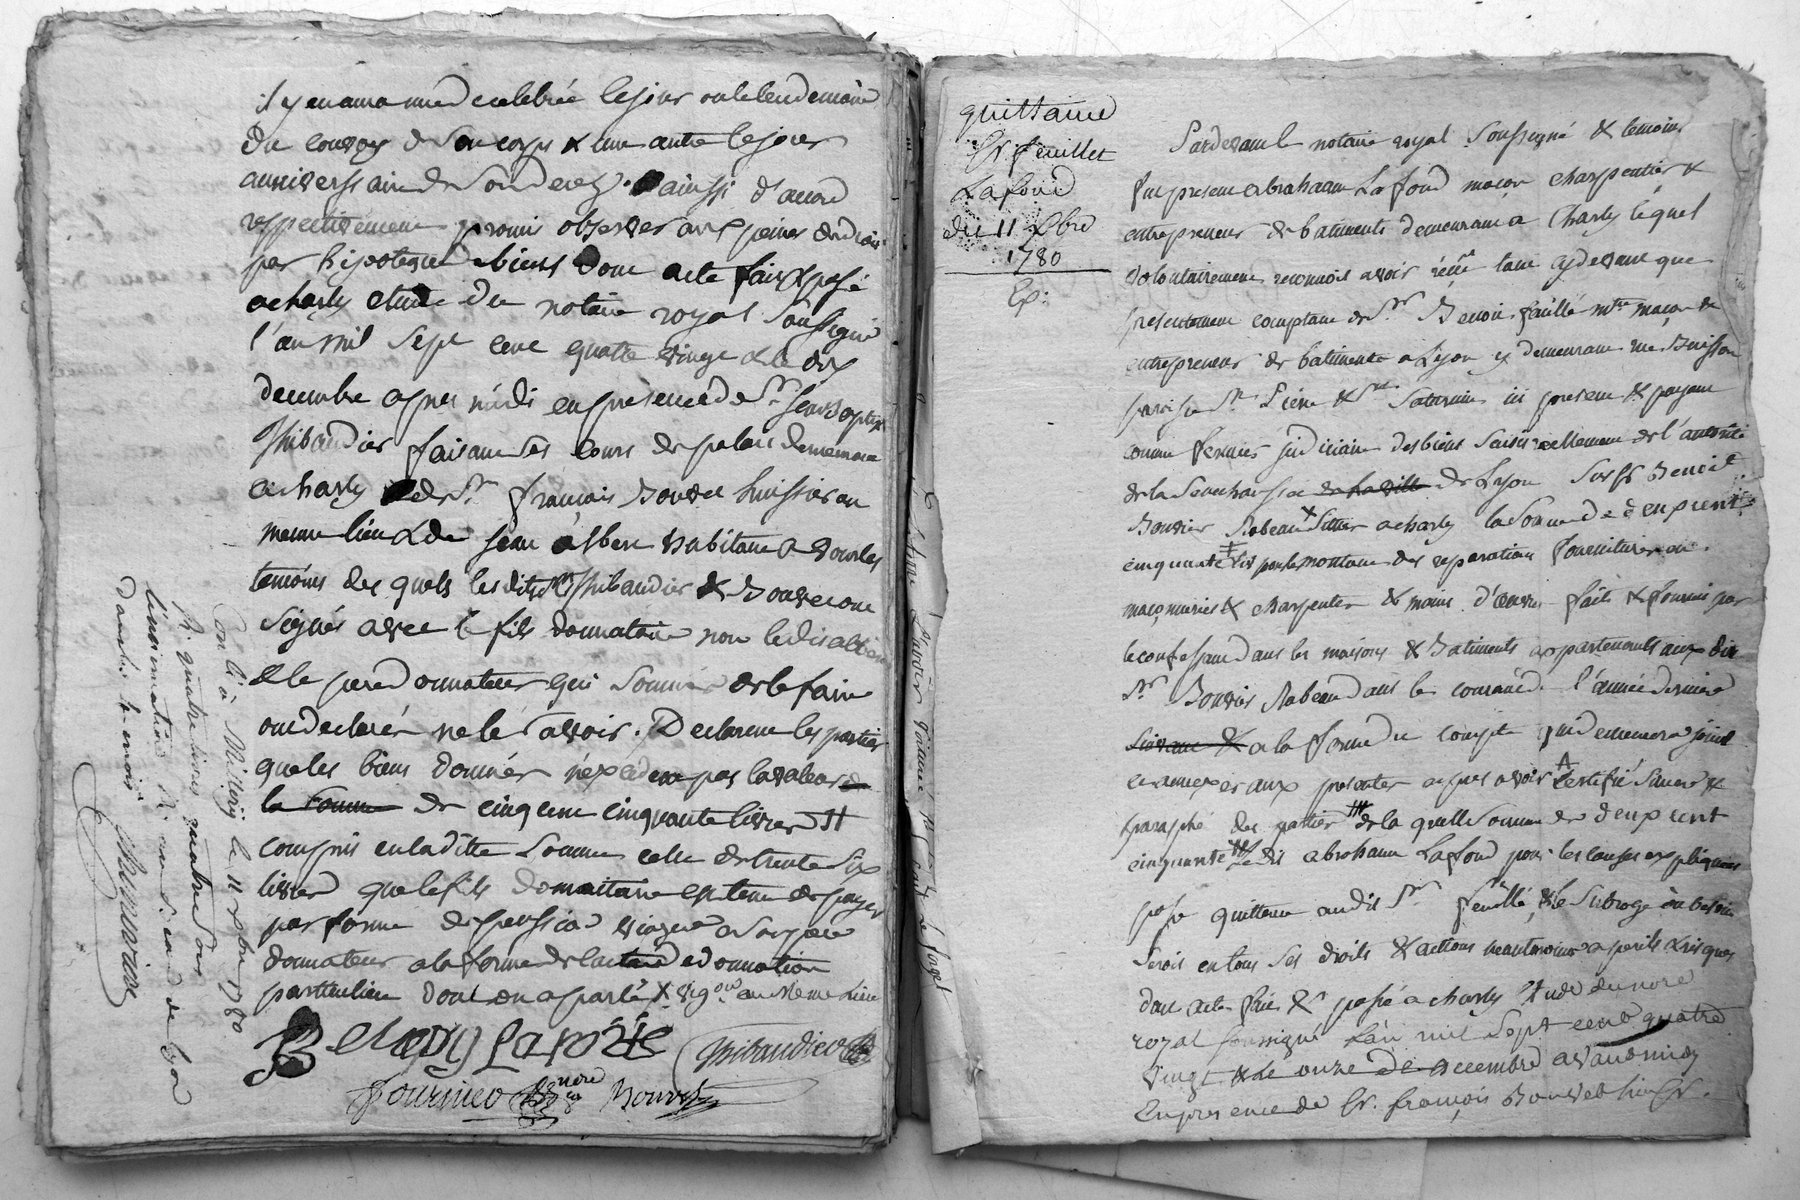 il y en aura une celebrée le jour ou le lendemain
du convoy de son corps & une autre le jour
anniversaire de son decez. ainssi d'accord
respectivement promis observer aux peines de droit
par hipoteque biens dont acte fait & passé
a charly etude du notaire royal soussigné
l'an mil sept cent quatre vingt & le dix
decembre apres midi en presence de Sr
Thibaudier faisant ses cours de palais demeurant
a charly & de Sr françois Bouvet huissier au
meme lieu & de jean albert habitant a vourles
temoins des quels lesdits Srs Thibaudier & Bouvet ont
signés avec le fils donnataire non ledit albert
& le pere donnateur qui sommés de le faire
ont declarés ne le savoir. Declarent les parties
que les biens donnés n'excedent pas la valeur de
la somme de cinq cent cinquante livres
compris en la ditte somme celle de trente six
livres que le fils donnataire est tenu de payer
par forme de pension viagere a son pere
donnateur a la forme de la donnation
particuliere dont on a parlé au meme lieu
Thibaudier
fournier nore Bouvet
Con. lé à Millery le 11 xbre 1780
R. quatre livres quatre sous
l'insinuation
quittance
Sr feuillet
Lafond
du 11 Xbre
1780
Ex:
Pardevant le notaire royal soussigné & temoins
fut present abraham Lafond maçon charpentier &
entrepreneur de batiments demeurant a Charly lequel
volontairement reconnoit avoir reçu tant cydevant que
presentement comptant de Sr Benoit feuillé mtre maçon &
entrepreneur de batiments a Lyon y demeurant rue Buisson
paroisse St Pierre & St Saturnin ici present & payant
comme fermier judiciaire des biens saisis reellement de l'autorité
de la Senechaussée de la ville de Lyon sur Sr Benoit
Bouvier Nabeau a charly la somme de deux cent
cinquante livres pour le montant des reparations fournitures en
maçonneries & charpentes & mains d'œuvres faits & fournis par
le confessant dans les maisons & Batiments appartenants aux dit
Sr Bouvier Nabeau dans le courant de l'année derniere
suivant & a la forme du compte qui demeurera joint
et annexé aux presentes apres avoir eté certifié sincere &
paraphé des parties de la quelle somme de deux cent
cinquante ledit abraham Lafond pour les causes expliquées
passe quittance audit Sr feuillé, & le subroge au besoin
seroit en tous ses droits & actions neantmoins a perils & risques
dont acte fait & passé a charly Etude du nore
royal soussigné L'an mil sept cent quatre
vingt & le onze de decembre avant midy
En presence de Sr. françois Bouvet huisr.